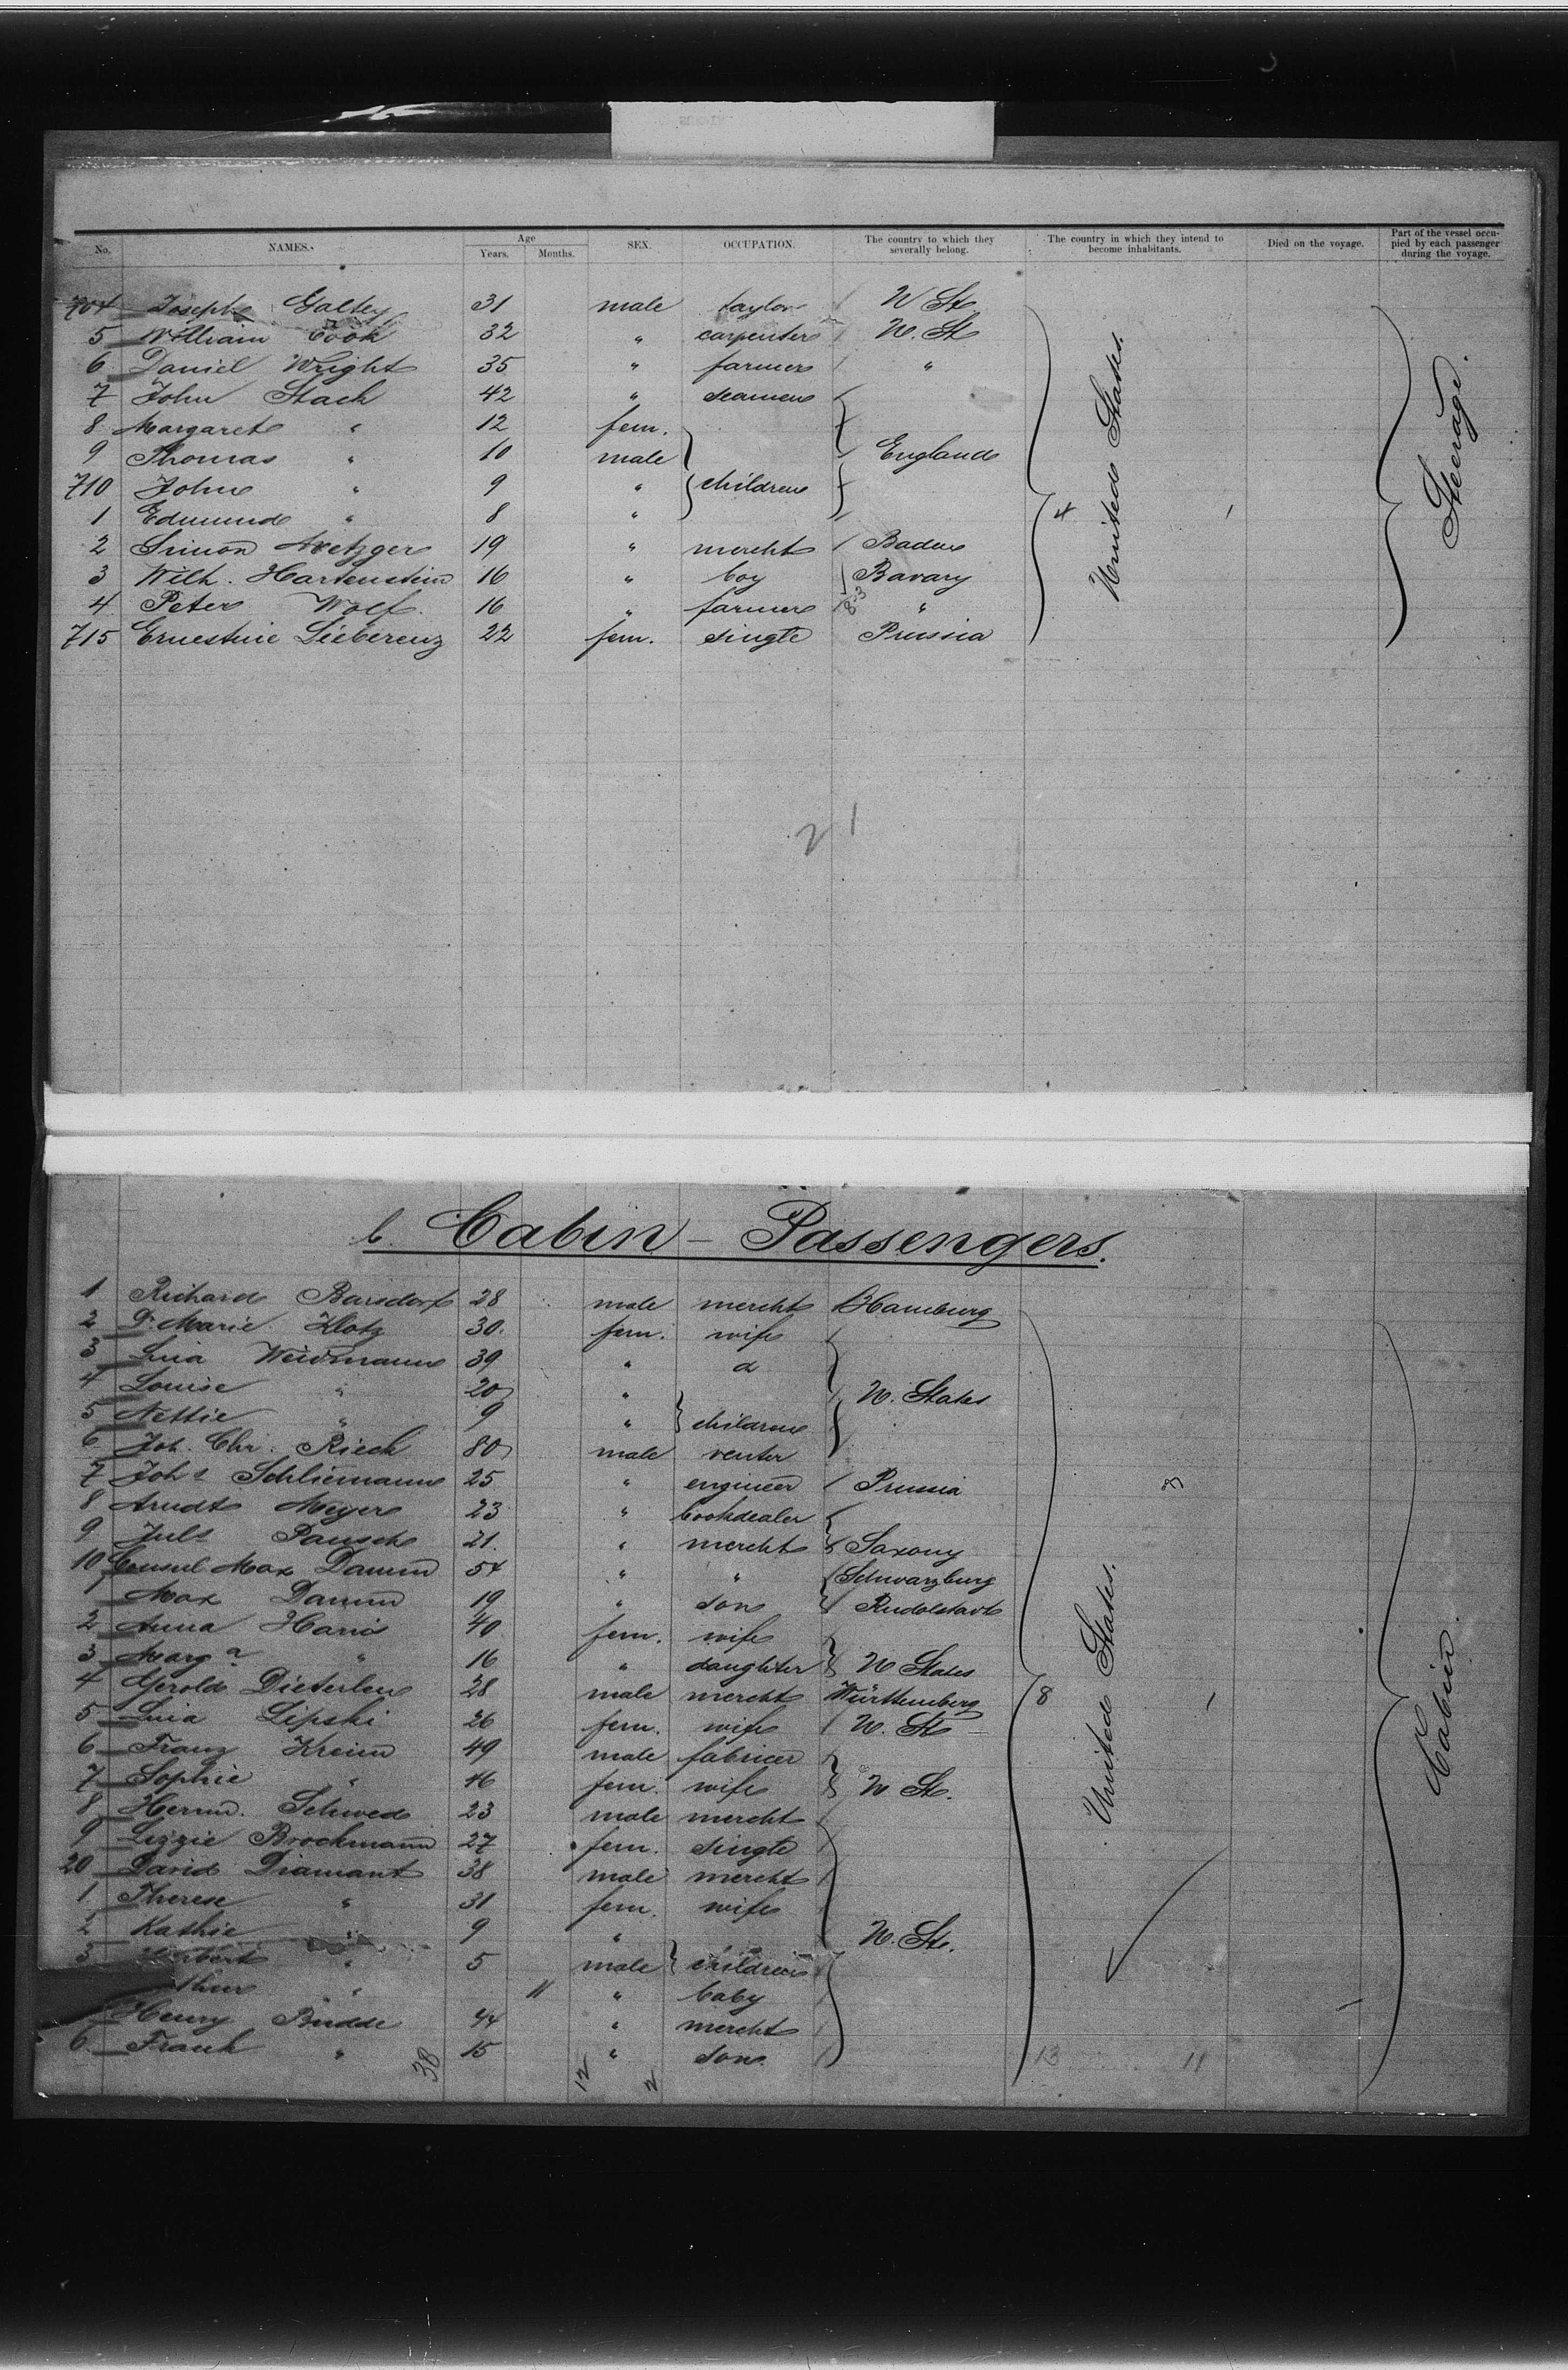 No. NAMES. Age Years. Months. SEX. OCCUPATION. The country to which they severally belong. The country in which they intend to become inhabitants. Died on the voyage. Part of the vessel occupied by each passenger during the voyage.
704 Joseph Galley 31 male taylor U St
5 William Cook 32 " carpenter U. St
6 Daniel Wright 35 " farmer "
7 John Stack 42 " seamen
8 Margaret " 12 fem.
9 Thomas " 10 male England
710 John " 9 " children
1 Edmund " 8 "
2 Simon Metzger 19 " mercht Baden
3 Wilh. Hartenstein 16 " boy Bavary
4 Peter Wolf. 16 " farmer "
715 Ernestine Lieberenz 22 fem. single Prussia
United States.
4
Steerage.
21
b. Cabin - Passengers.
1 Richard Barsdorf 28 male mercht Hamburg
2 Dr. Marie Klotz 30. fem. wife
3 Lina Weidmann 39 " d
4 Louise " 20 " U. States
5 Nettie " 9 " children
6 Joh. Chr. Riech 80 male renter
7 Johs Schliemann 25 " engineer Prussia
8 Arndt Meyer 23 " bookdealer
9 Juls Pausch 21. " mercht Saxony
10 Consul Max Damm 54 " " Schwarzburg
1 Max Damm 19 " son Rudolstadt
2 Anna Harris 40 fem. wife
3 Marga " 16 " daughter U States
4 Gerold Dieterlen 28 male mercht Württemberg
5 Lina Lipski 26 fem. wife U. St
6 Franz Kreim 49 male fabricer
7 Sophie " 46 fem. wife U St.
8 Herm. Schwed 23 male mercht
9 Lizzie Brockmann 27 fem. single
20 David Diamant 38 male mercht
1 Therese " 31 fem. wife
2 Kathie " 9 " U. St.
3 " 5 male children
" 11 " baby
Henry Budde 44 " mercht
6. Frank " 15 " son
United States.
8
Cabin
38 12 2 13 11